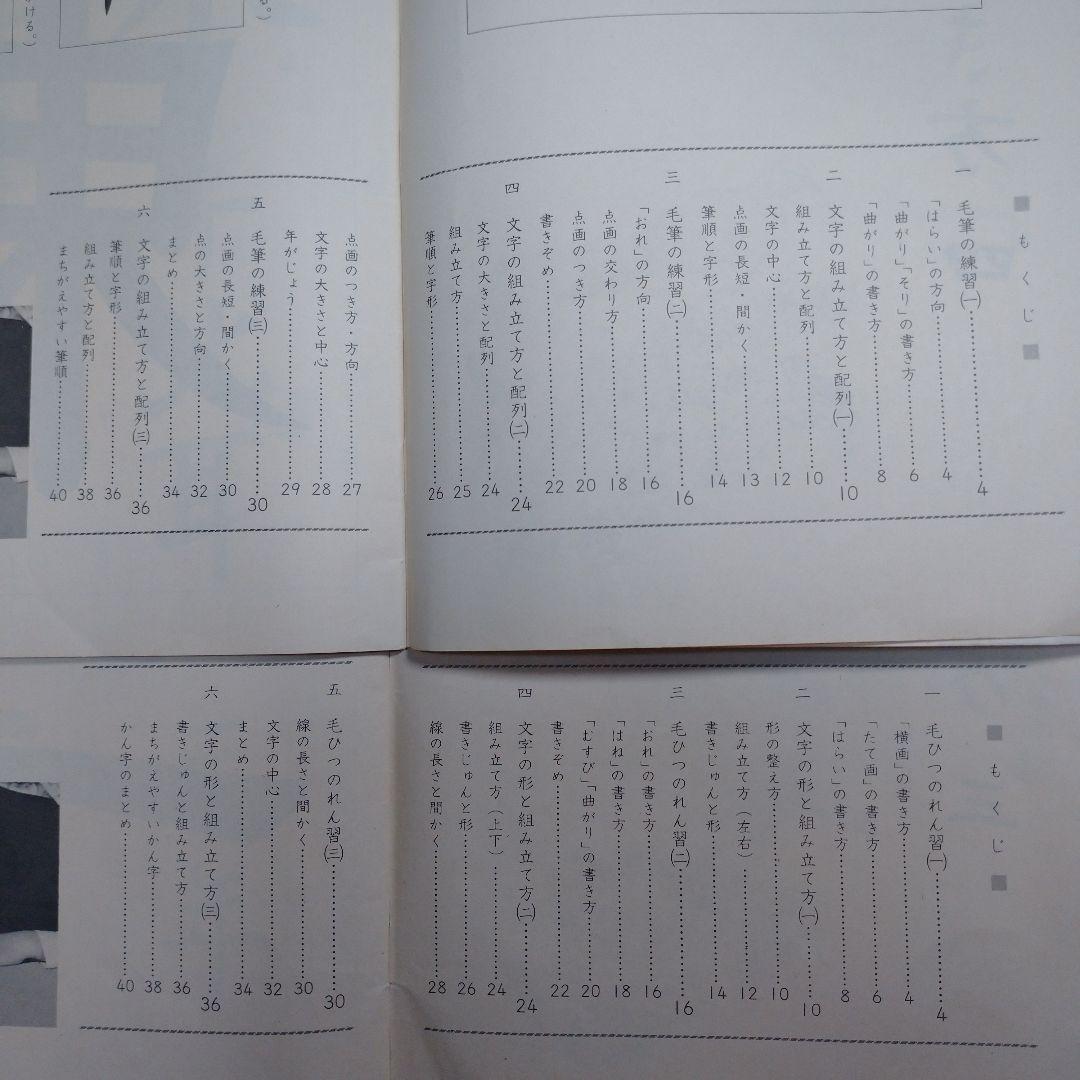 る。）
ける。）
■もくじ■
一 毛筆の練習(一)……4
「はらい」の方向……4
「曲がり」「そり」の書き方……6
「曲がり」の書き方……8
二 文字の組み立て方と配列(一)……10
組み立て方と配列……10
文字の中心……12
点画の長短・間かく……13
筆順と字形……14
三 毛筆の練習(二)……16
「おれ」の方向……16
点画の交わり方……18
点画のつき方……20
書きぞめ……22
四 文字の組み立て方と配列(二)……24
文字の大きさと配列……24
組み立て方……25
筆順と字形……26
点画のつき方・方向……27
文字の大きさと中心……28
年がじょう……29
五 毛筆の練習(三)……30
点画の長短・間かく……30
点の大きさと方向……32
まとめ……34
六 文字の組み立て方と配列(三)……36
筆順と字形……36
組み立て方と配列……38
まちがえやすい筆順……40
■もくじ■
一 毛ひつのれん習(一)……4
「横画」の書き方……4
「たて画」の書き方……6
「はらい」の書き方……8
二 文字の形と組み立て方(一)……10
形の整え方……10
組み立て方（左右）……12
書きじゅんと形……14
三 毛ひつのれん習(二)……16
「おれ」の書き方……16
「はね」の書き方……18
「むすび」「曲がり」の書き方……20
書きぞめ……22
四 文字の形と組み立て方(二)……24
組み立て方（上下）……24
書きじゅんと形……26
線の長さと間かく……28
五 毛ひつのれん習(三)……30
線の長さと間かく……30
文字の中心……32
まとめ……34
六 文字の形と組み立て方(三)……36
書きじゅんと組み立て方……36
まちがえやすいかん字……38
かん字のまとめ……40